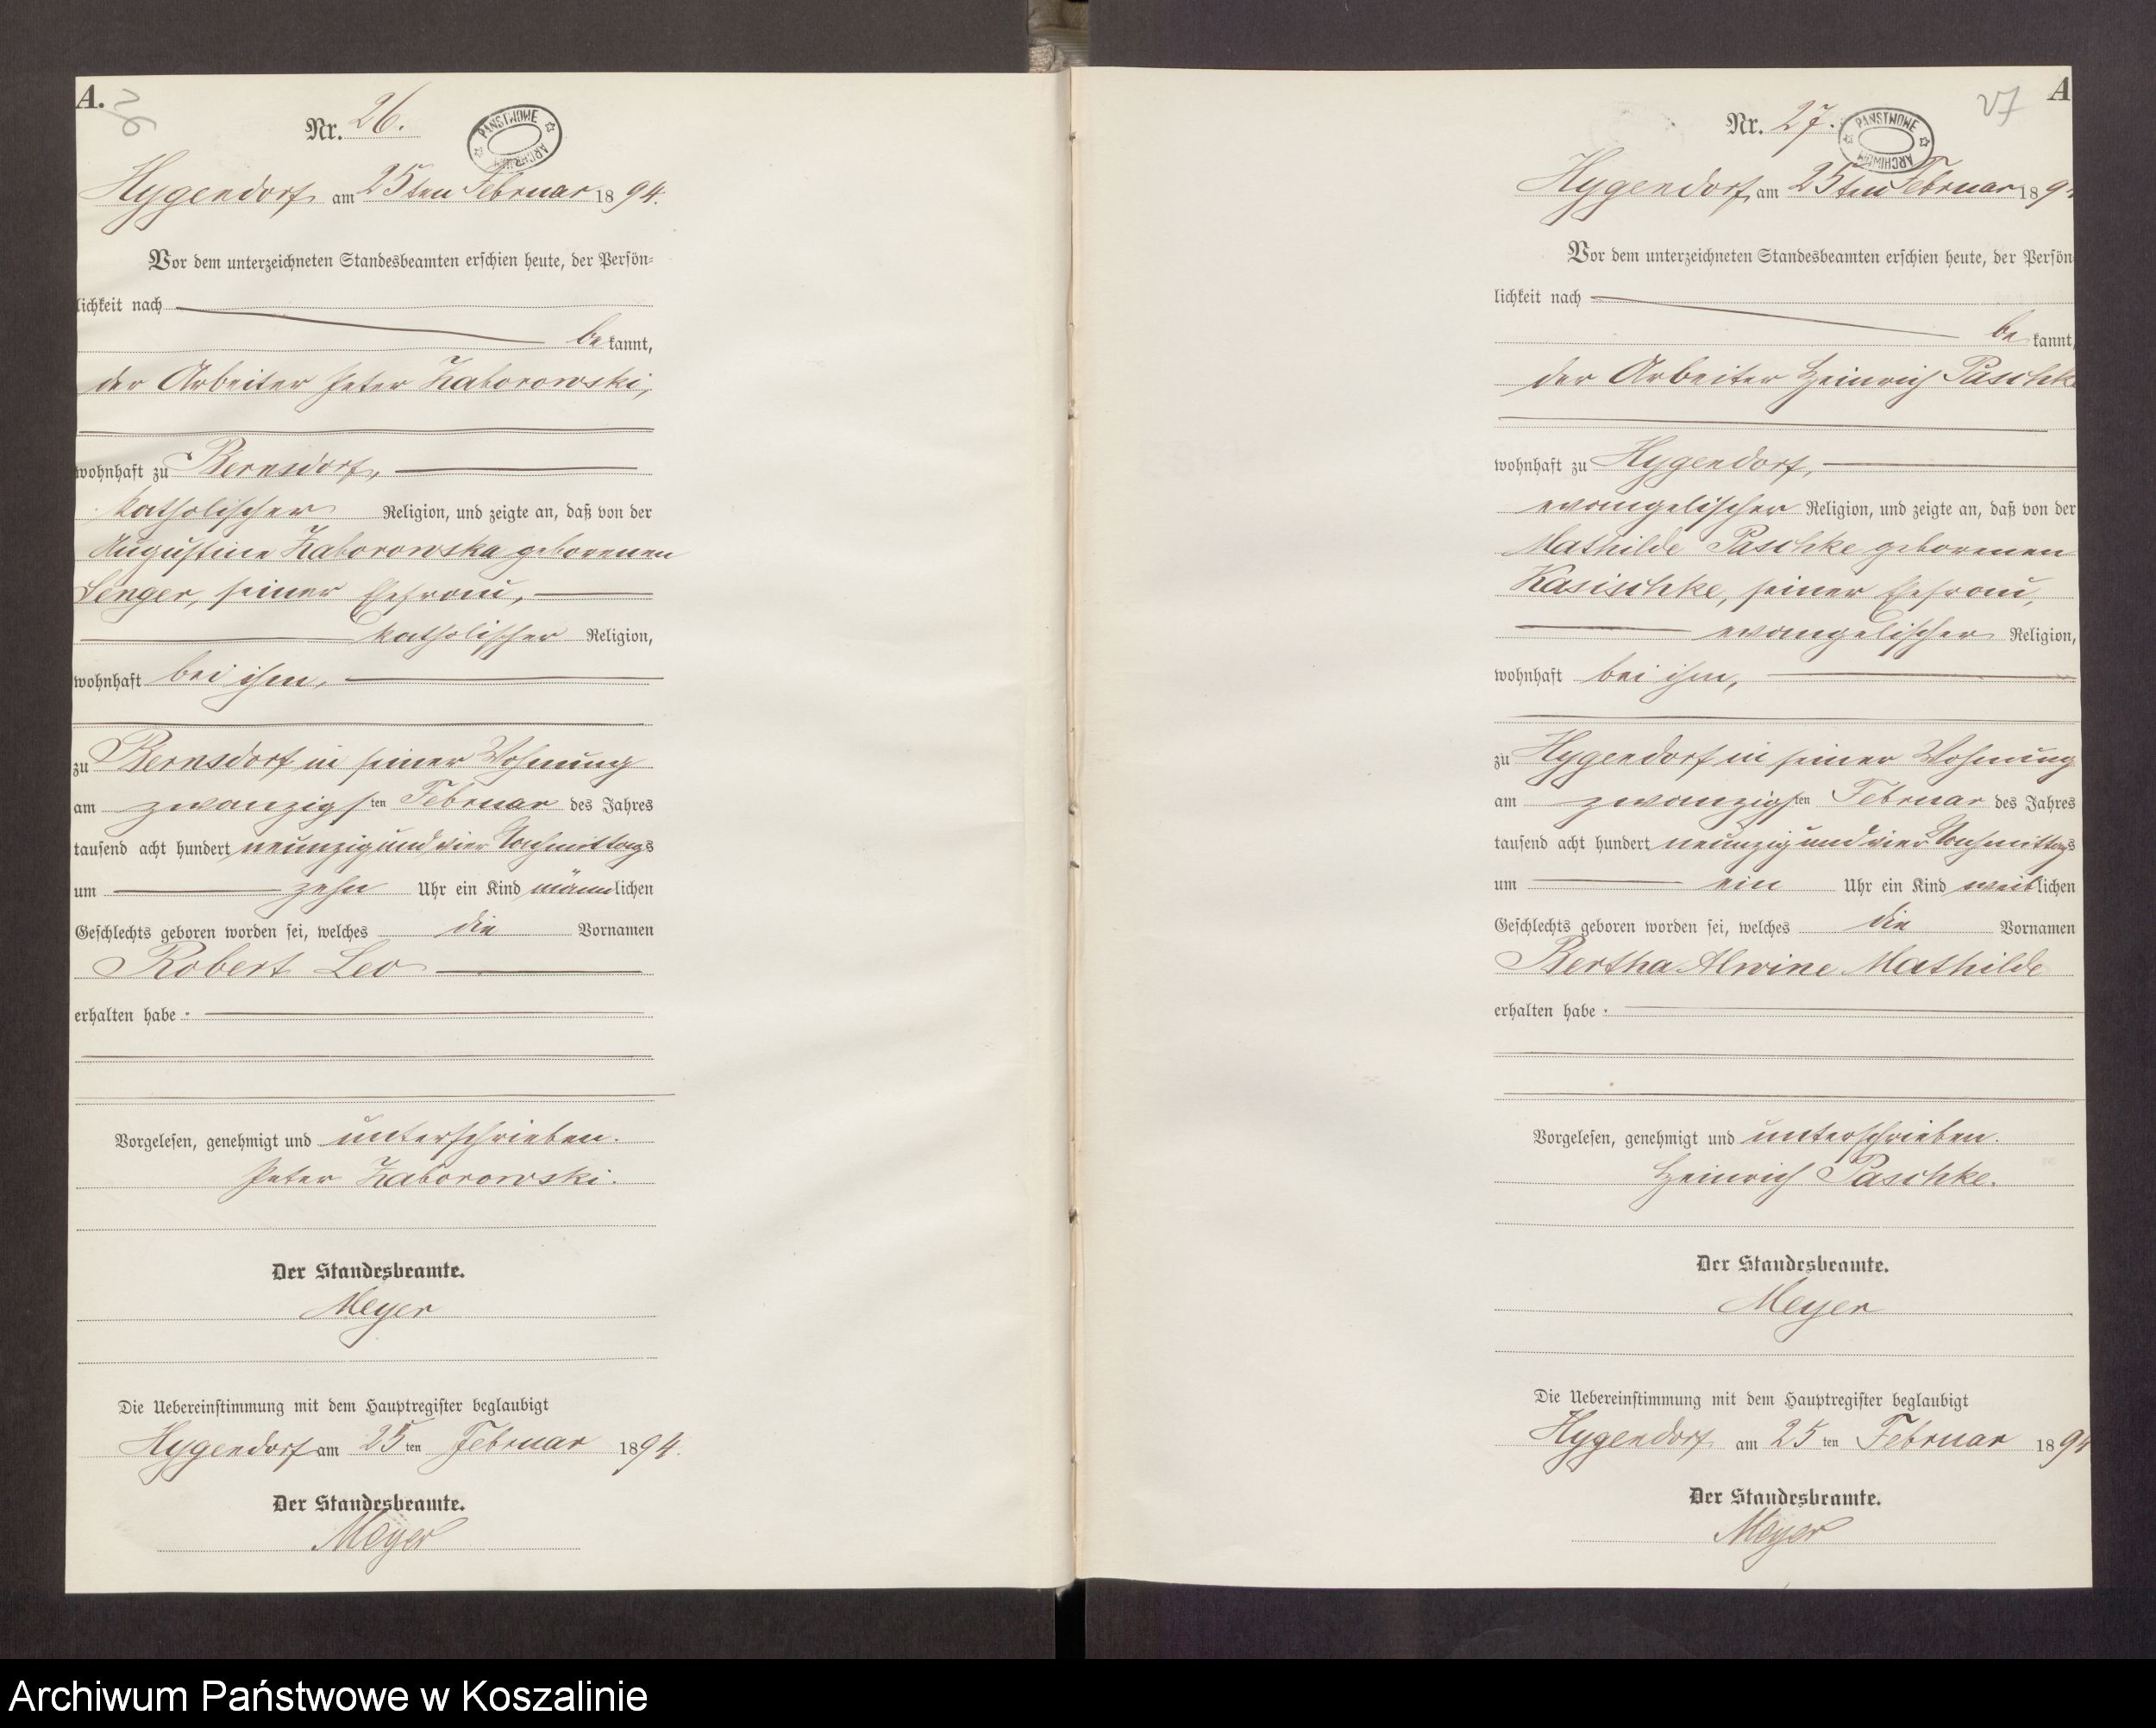 A.
26
Nr. 26.
PAŃSTWOWE ARCHIWUM
Hygendorf am 25ten Februar 1894.
Vor dem unterzeichneten Standesbeamten erschien heute, der Persön-
lichkeit nach
bekannt,
der Arbeiter Peter Zaborowski,
wohnhaft zu Bernsdorf,
katholischer Religion, und zeigte an, daß von der
Augustine Zaborowska geborenen
Senger, seiner Ehefrau,
katholischer Religion,
wohnhaft bei ihm,
zu Bernsdorf in seiner Wohnung
am zwanzigsten Februar des Jahres
tausend acht hundert neunzig und vier Nachmittags
um zehn Uhr ein Kind männlichen
Geschlechts geboren worden sei, welches die Vornamen
Robert Leo
erhalten habe.
Vorgelesen, genehmigt und unterschrieben.
Peter Zaborowski.
Der Standesbeamte.
Meyer
Die Uebereinstimmung mit dem Hauptregister beglaubigt
Hygendorf am 25ten Februar 1894.
Der Standesbeamte.
Meyer
A
27
Nr. 27.
PAŃSTWOWE ARCHIWUM
Hygendorf, am 25ten Februar 189
Vor dem unterzeichneten Standesbeamten erschien heute, der Persön
lichkeit nach
bekannt,
der Arbeiter Heinrich Paschke
wohnhaft zu Hygendorf,
evangelischer Religion, und zeigte an, daß von der
Mathilde Paschke geborenen
Kasischke, seiner Ehefrau,
evangelischer Religion,
wohnhaft bei ihm,
zu Hygendorf in seiner Wohnung
am zwanzigsten Februar des Jahres
tausend acht hundert neunzig und vier Nachmittags
um ein Uhr ein Kind weiblichen
Geschlechts geboren worden sei, welches die Vornamen
Bertha Alwine Mathilde
erhalten habe.
Vorgelesen, genehmigt und unterschrieben.
Heinrich Paschke.
Der Standesbeamte.
Meyer
Die Uebereinstimmung mit dem Hauptregister beglaubigt
Hygendorf am 25ten Februar 1894
Der Standesbeamte.
Meyer
Archiwum Państwowe w Koszalinie